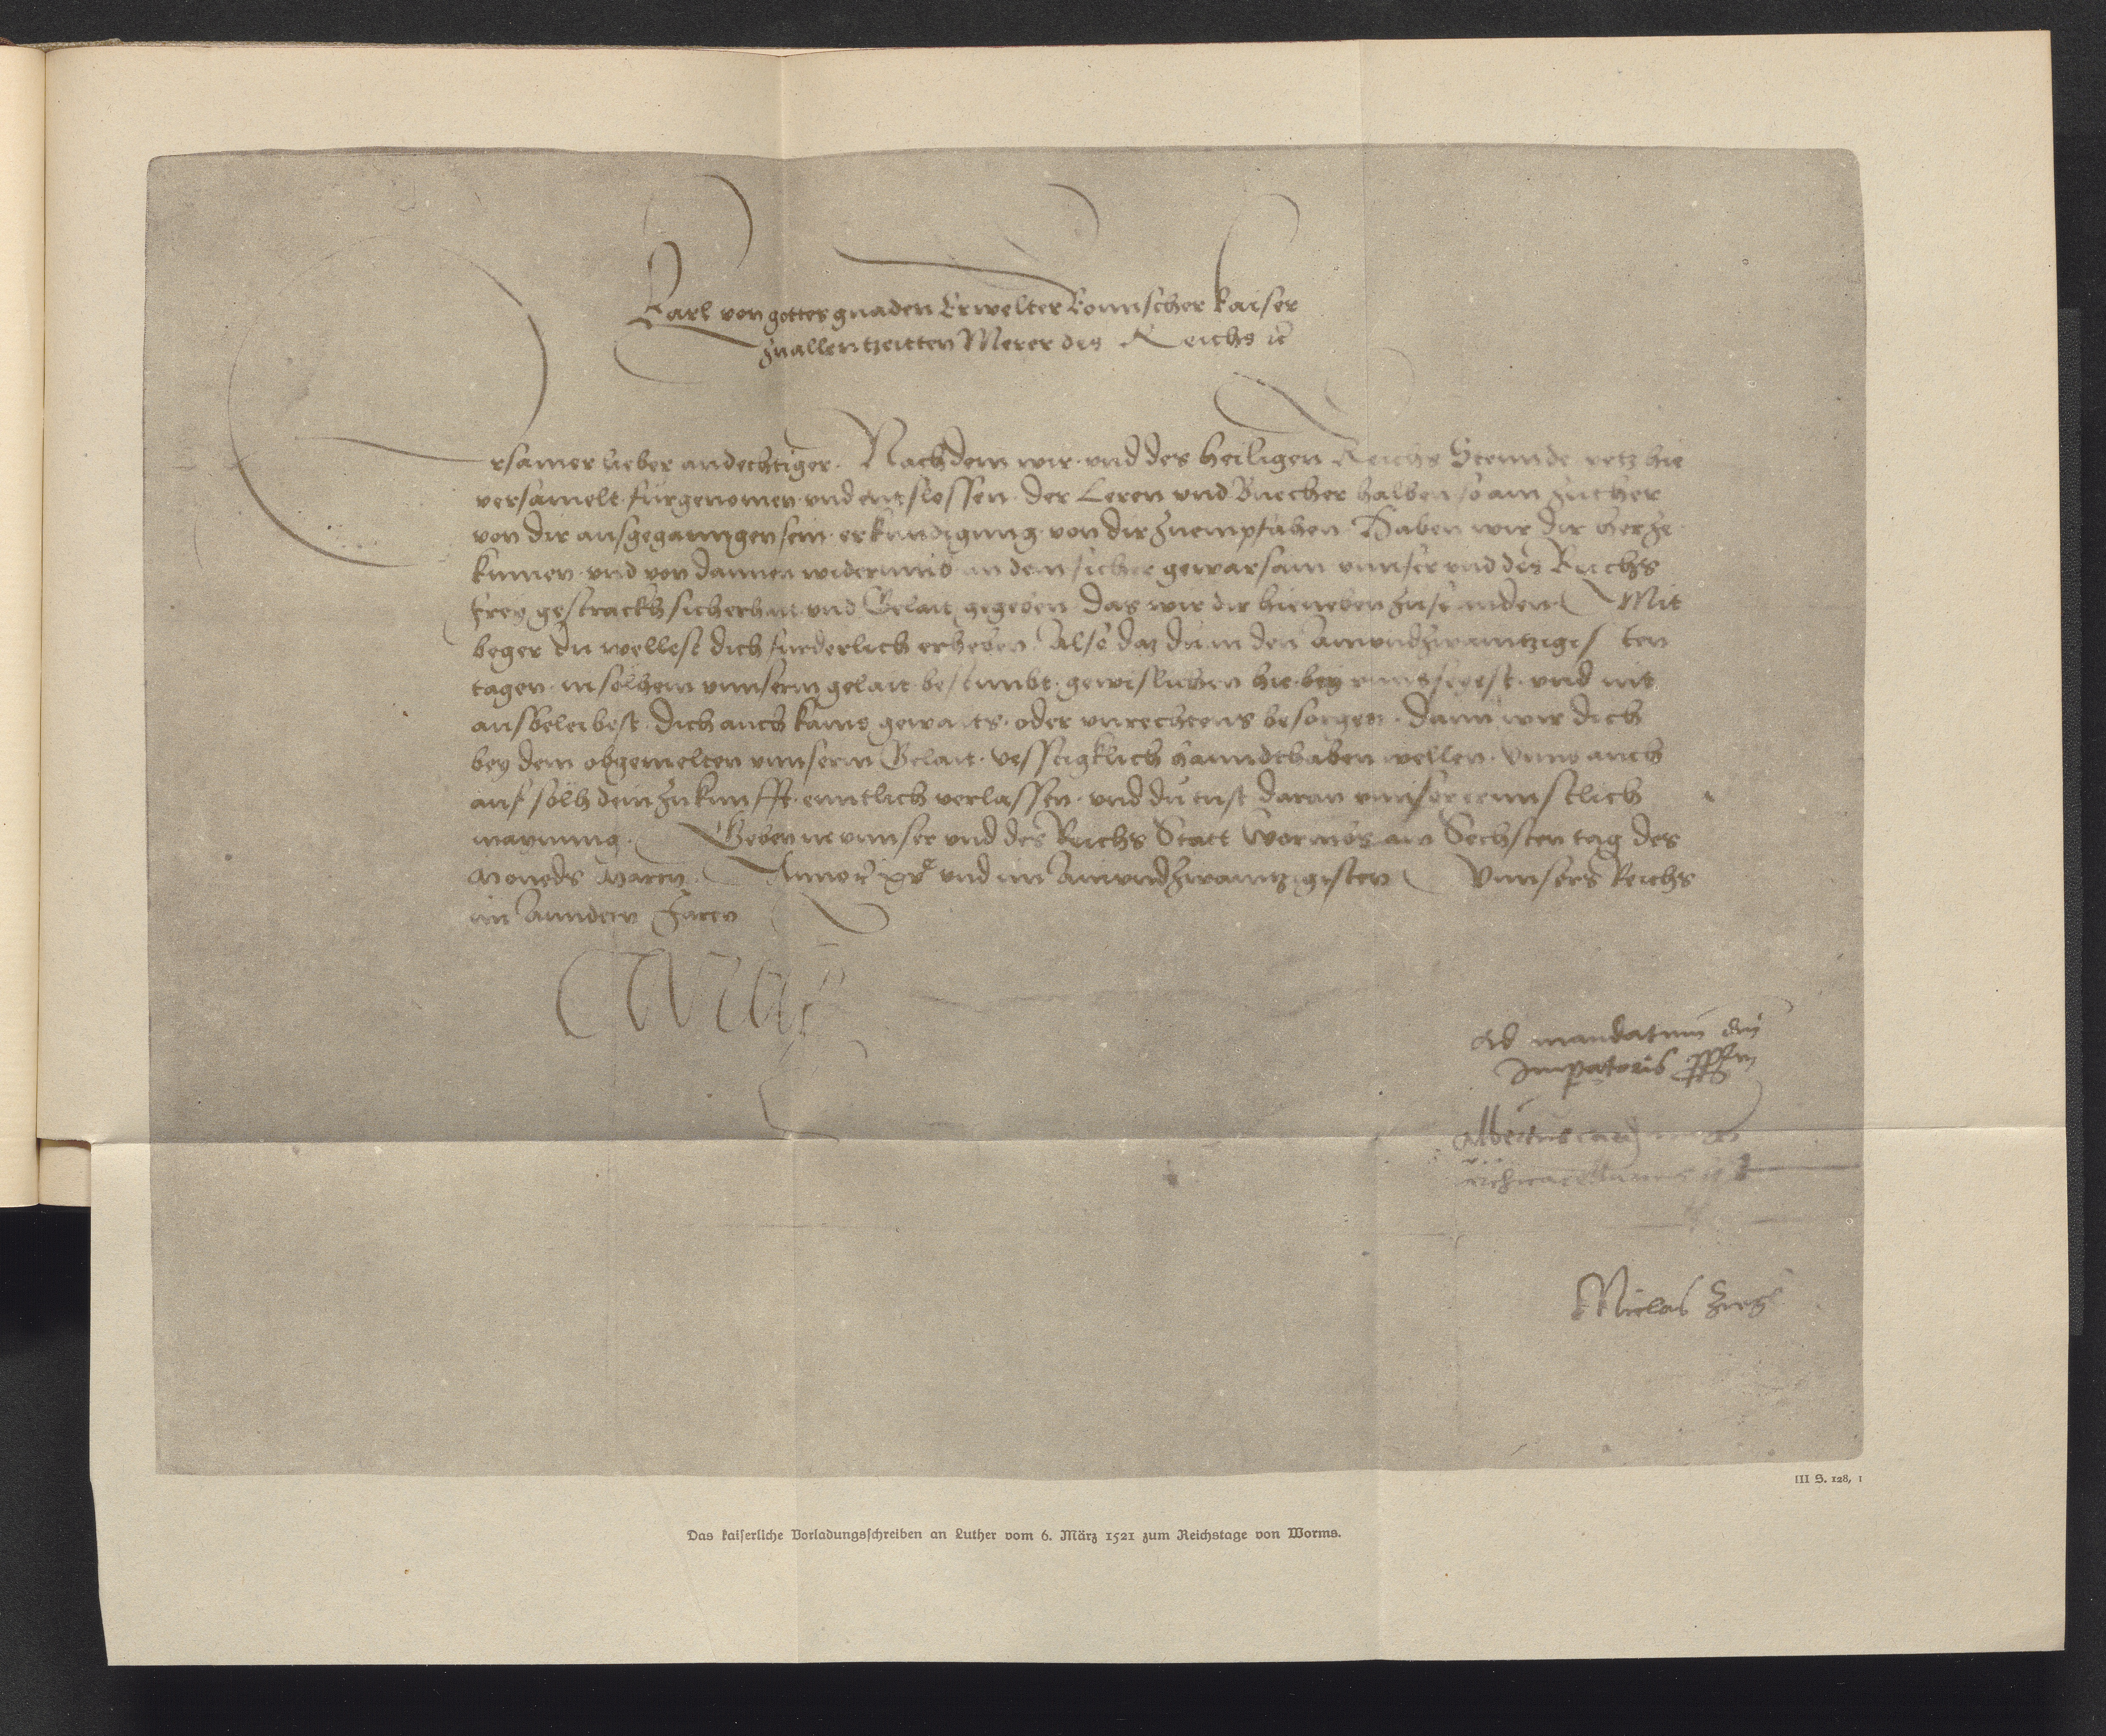 Karl von gottes gnaden Erwelter Romischer kaiser
zu allen tzeitten Merer des Reichs ꝛc
Ersamer lieber andechtiger. Nachdem wir. vnd des heiligen Reichs Stennde yetz hie
versamelt. fürgenomen vnd entslossen. der Leren vnd Buecher halben so am zither
von dir ausgegangen sein. erkundigung. von dir zuempfahen. Haben wir dir herze
kumen. vnd von dannen widerumb an dein sicher gewarsam vnnser vnd des Reichs
frey gestrackh sicherhait vnd Gelait gegeben. das wir dir hieneben zusenden Mit
beger du wellest dich furderlich erheben. Also daz du in den Ainundzwaintzigisten
tagen. in solhem vnnserm gelait bestimbt. gewislichen hie bey vnns seyest. vnd nit
aussbeleibest. dich auch kains gewalts. oder vnrechtens besorgen. dann wir dich
bey dem obgemelten vnnserm Gelait. vesstigklich hanndthaben wellen. Vnns auch
auf solh dein zukunfft. enntlich verlassen. vnd du tust daran vnnser ernnstlich
maynung. Geben in vnnser vnd des Reichs Statt Wormbs am Sechsten tag des
Moneds Marcy. Anno ꝛc xvᶜ vnd im Ainundzwaintzigisten Vnnsers Reichs
im Anndern Jaren
Carolus
Ad mandatum dni
Imperatoris pprm
Albertus car
archicancellarius
Niclas Ziegler
III S. 128, 1
Das kaiserliche Vorladungsschreiben an Luther vom 6. März 1521 zum Reichstage von Worms.